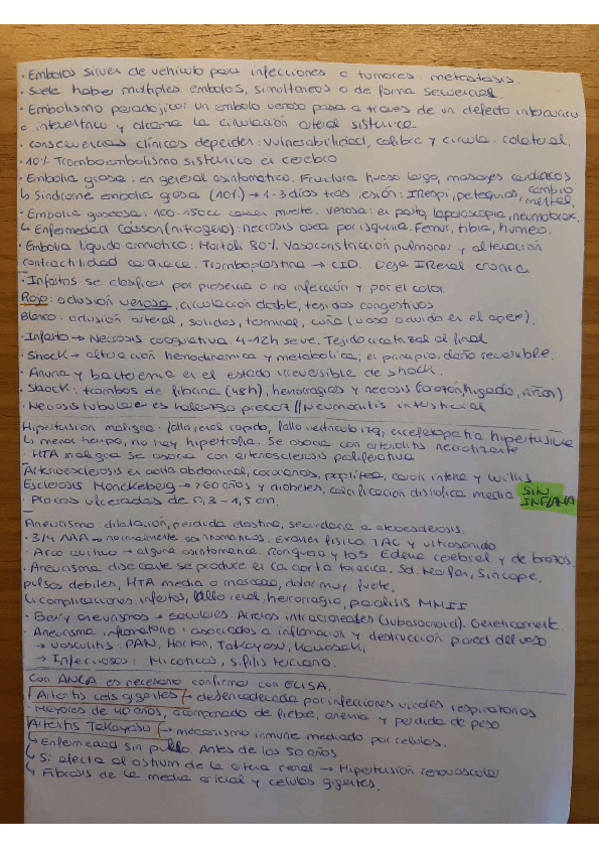 · Embolos sirven de vehiculo para infecciones o tumores: metastasis.
· Suele haber multiples embolos, simultaneos o de forma secuencial.
· Embolismo paradojico: un embolo venoso pasa a traves de un defecto interauricu
o interventricu y alcanza la circulación arterial sistemica.
· consecuencias clínicas dependen: vulnerabilidad, calibre y circula. colateral.
· 10% Tromboembolismo sistemico es cerebro
· Embolia grasa: en general asintomatico. Fractura hueso largo, masajes cardiacos
↳ Sindrome embolia grasa (10%) → 1-3 dias tras lesión: IRespi, petequias, cambio mental.
· Embolia gaseosa: 100-150cc causan muerte. Venosa: en parto, laparoscopia, neumotorax.
↳ Enfermedad Caisson (nitrogeno): necrosis osea por isquemia. Femur, tibia, humero.
· Embolia liquido amniotico: Mortali 80%. Vasoconstricción pulmonar y alteración
contractilidad cardiaca. Tromboplastina → CID. Deja IRenal cronica
· Infartos se clasifican por presencia o no infección y por el color.
Rojo: oclusión venosa, circulación doble, tejidos congestivos
Blanco: oclusión arterial, solidos, terminal, cuña (vaso ocluido es el apex).
· Infarto → Necrosis coagulativa 4-12h se ve. Tejido cicatrizal al final
· Shock → alteración hemodinamica y metabolica; al principio, daño reversible.
· Anuria y bacteremia es el estado irreversible de shock.
· Shock: trombos de fibrina (48h), hemorragias y necrosis (corazón, hígado, riñon)
· Necrosis tubular es hallazgo precoz // Neumonitis intersticial
Hipertension maligna: fallo renal rapido, fallo ventriculo izq, encefalopatia hipertensiva
↳ menor tiempo, no hay hipertrofia. Se asocia con arteriolitis necrotizante
· HTA maligna se asocia con arteriosclerosis proliferativa
Arterioesclerosis en aorta abdominal, coronarias, poplitea, caroti interna y Willis
Esclerosis Monckeberg → >60 años y diabetes, calcificación distrofica media SIN INFLAMA
· Placas ulceradas de 0,3 - 1,5 cm
Aneurisma: dilatación, perdida elastina, secundaria a aterosclerosis.
· 3/4 AAA → normalmente asintomaticos. Examen fisico, TAC y ultrasonido
· Arco aortico → alguna asintomatica. Ronquera y tos. Edema cerebral y de brazos.
· Aneurisma disecante se produce en la aorta toracica. Sd. Marfan, Sincope,
pulsos debiles, HTA media o moderada, dolor muy fuerte.
↳ complicaciones: infartos, fallo renal, hemorragia, paralisis MMII
· Berry aneurismos → saculares. Arterias intracraneales (subaracnoid). Geneticamente.
· Aneurisma inflamatorio: asociados a inflamación y destrucción pared del vaso
→ Vasculitis: PAN, Horton, Takayasu, Kawasaki
→ Infecciosos: Micoticos, sifilis terciaria.
Con ANCA es necesario confirmar con ELISA.
Arteritis cels gigantes → desencadenada por infecciones virales respiratorias
· Mayores de 40 años, acompañado de fiebre, anemia y perdida de peso.
Arteritis Takayasu → mecanismo inmune mediado por celulas.
↳ Enfermedad sin pulso. Antes de los 50 años
↳ Si afecta al ostium de la arteria renal → Hipertensión renovascular
↳ Fibrosis de la media arterial y celulas gigantes.